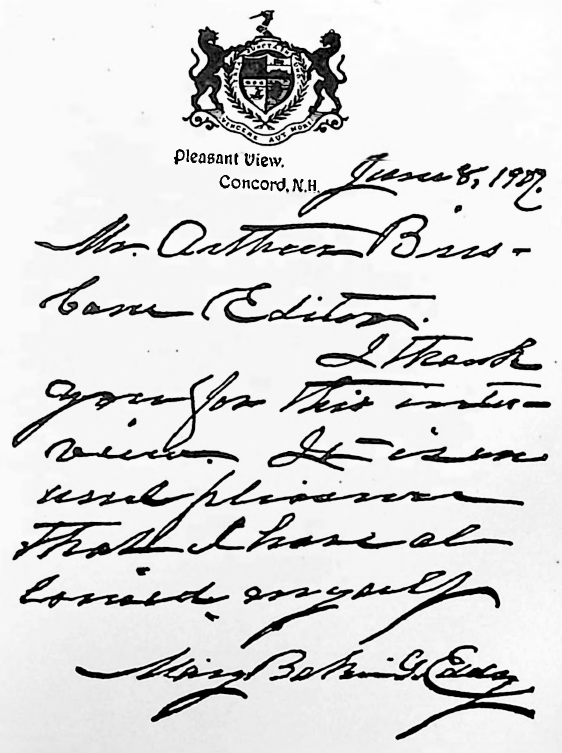 VINCERE AUT MORI
Pleasant View,
Concord, N.H.
June 8, 1907.
Mr. Arthur Bris-
bane Editor.
I thank
you for this inter-
view. It is un
usual pleasure
that I have al
lowed myself
Mary Baker G. Eddy